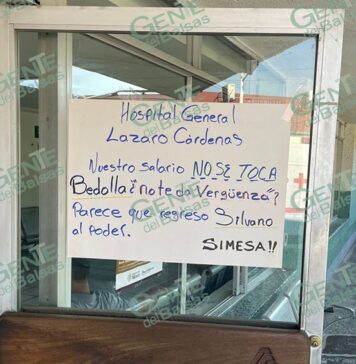 Hospital General
Lazaro Cárdenas
Nuestro salario NO SE TOCA
Bedolla ¿"no te da Vergüenza"?
Parece que regreso Silvano
al poder.
SIMESA!!
GENTE
del Balsas